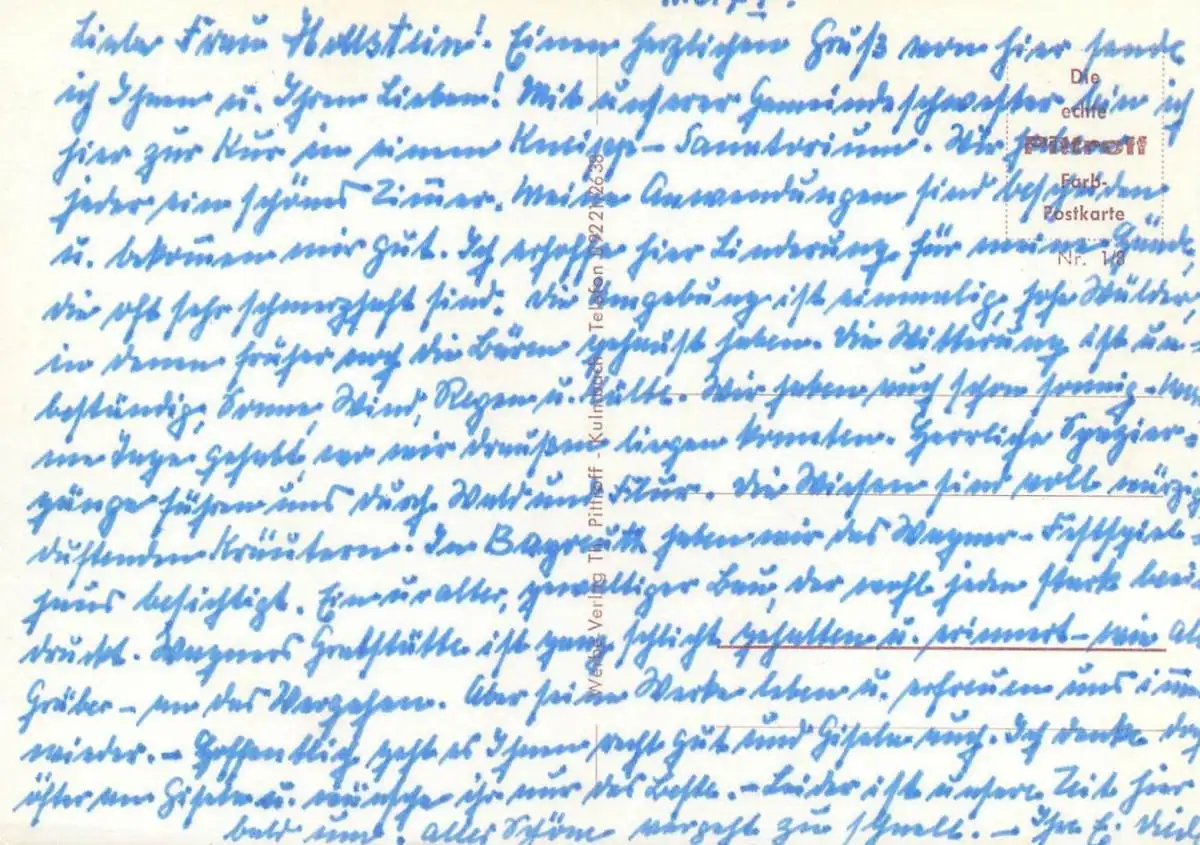 Liebe Frau Hollstein! Einen herzlichen Gruß von hier sende
ich Ihnen u. Ihren Lieben! Mit unserer Gemeindeschwester bin ich
hier zur Kur in einem Kneipp-Sanatorium. Wir haben
jeder ein schönes Zimmer. Meine Anwendungen sind bescheiden
u. bekommen mir gut. Ich erhoffe hier Linderung für meine Hände,
die oft sehr schmerzhaft sind. Die Umgebung ist einmalig, hohe Wälder,
in denen früher noch die Bären gehaust haben. Die Witterung ist un-
beständig, Sonne, Wind, Regen u. Kälte. Wir haben auch schon sonnig-
me Tage gehabt, wo wir draußen liegen konnten. Herrliche Spazier-
gänge führen uns durch Wald und Flur. Die Wiesen sind voll würzig
duftenden Kräutern. In Bayreuth haben wir das Wagner-Festspiel-
haus besichtigt. Ein uralter, gewaltiger Bau, der wohl jeden stark beein
druckt. Wagners Grabstätte ist ganz schlicht gehalten u. erinnert - wie
Gräber - an das Vergehen. Aber seine Werke leben u. erfreuen uns imm
wieder. - Hoffentlich geht es Ihnen recht gut und Gisela auch. Ich denke
öfter an Gisela u. wünsche ihr nur das Beste. - Leider ist unsere Zeit hier
bald um, alles Schöne vergeht zu schnell. - Ihre E.
Die
echte
Pittroff
Farb-
Postkarte
Nr. 1/8
Verlag Th. Pittroff - Kulmbach - Telefon 09221/2638